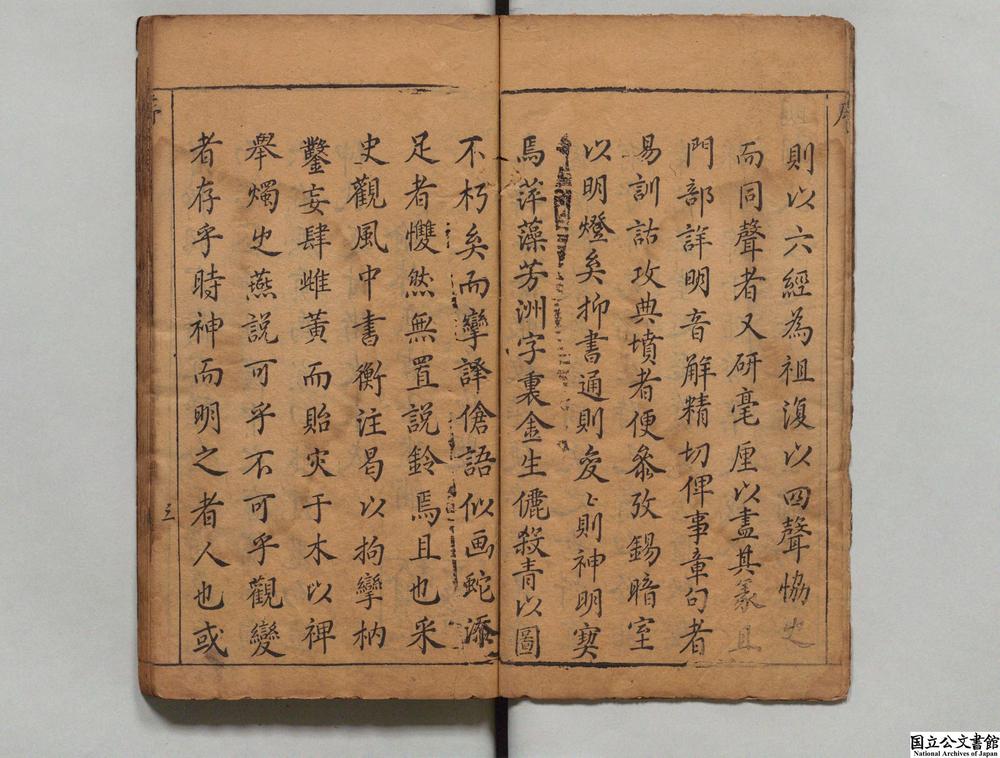 則以六經為祖復以四聲恊史
而同聲者又研毫厘以盡其篆且
門部詳明音解精切俾事章句者
易訓詁攻典墳者便叅攷錫暗室
以明燈矣抑書通則変〻則神明寞
焉萍藻芳洲字裏金生儷殺青以圖
不朽矣而孿譯傖語似画蛇添
足者戄然無置説鈴焉且也釆
史觀風中書衡注曷以拘孿枘
鑿妄肆雌黃而貽灾于木以裨
舉燭史燕説可乎不可乎觀變
者存乎時神而明之者人也或
序
三
国立公文書館
National Archives of Japan